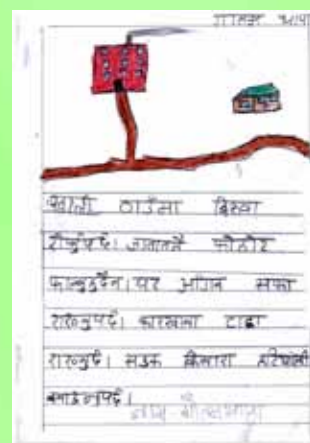 खाली ठाउँमा बिरुवा
रोप्नुपर्छ। जथाभावी फोहोर
फाल्नुहुदैन। घर आँगन सफा
राख्नुपर्छ। कारखाना टाढा
राख्नुपर्छ। सडक किनारा हरियाली
बनाउनुपर्छ।